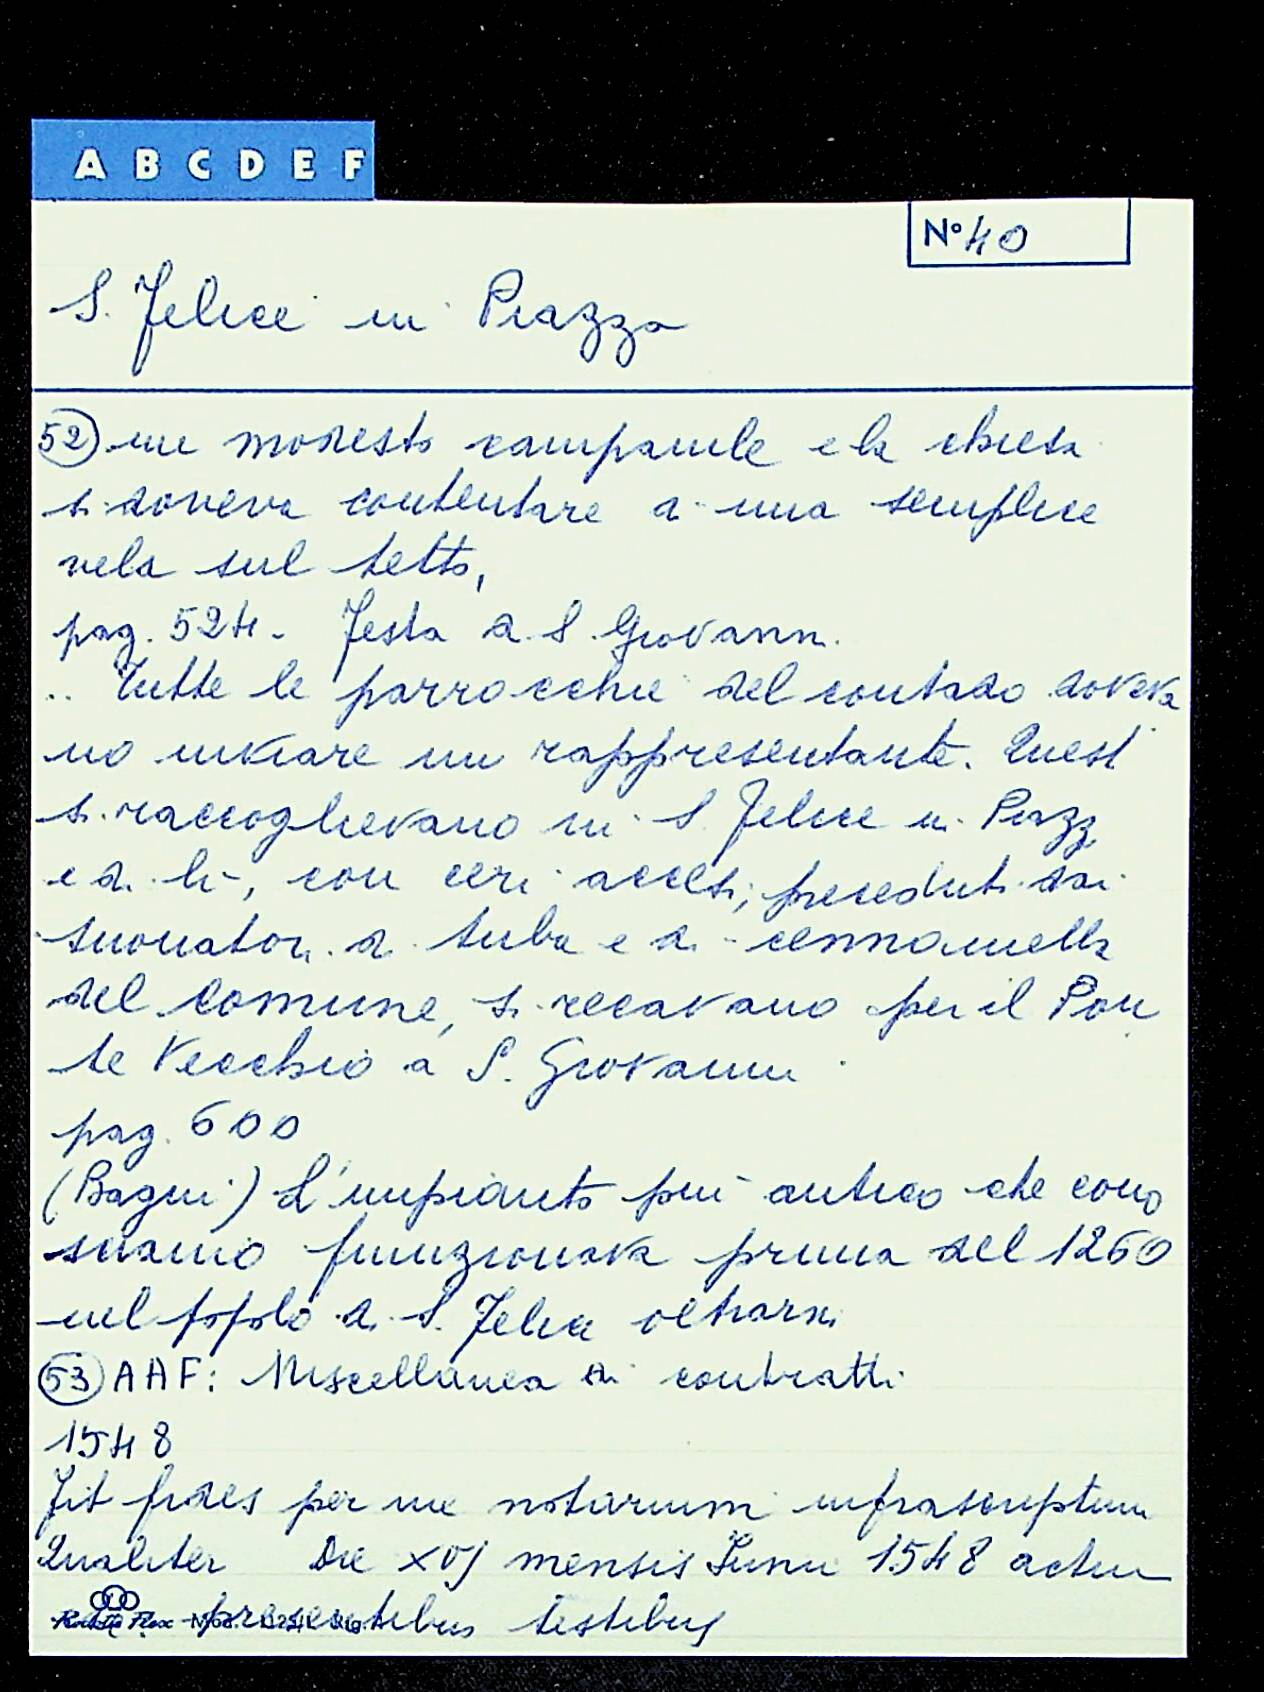 A B C D E F
N° 40
S. Felice in Piazza
52 un modesto campanile e la chiesa
si doveva contentare di una semplice
vela sul tetto,
pag. 524. Festa di S. Giovanni
.. Tutte le parrocchie del contado doveva
no inviare un rappresentante. Questi
si raccoglievano in S. Felice in Piazz
e di lì, con ceri accesi, preceduti dai
suonatori di tuba e di cennamella
del Comune, si recavano per il Pon
te Vecchio a S. Giovanni
pag. 600
(Bagni) L'impianto più antico che cono
sciamo funzionava prima del 1260
nel popolo di S. Felice oltrarni
53 AAF: Miscellanea di contratti
1548
Fit fides per me notarium infrascriptum
Qualiter Die XVJ mensis Junii 1548 actum
presentibus testibus